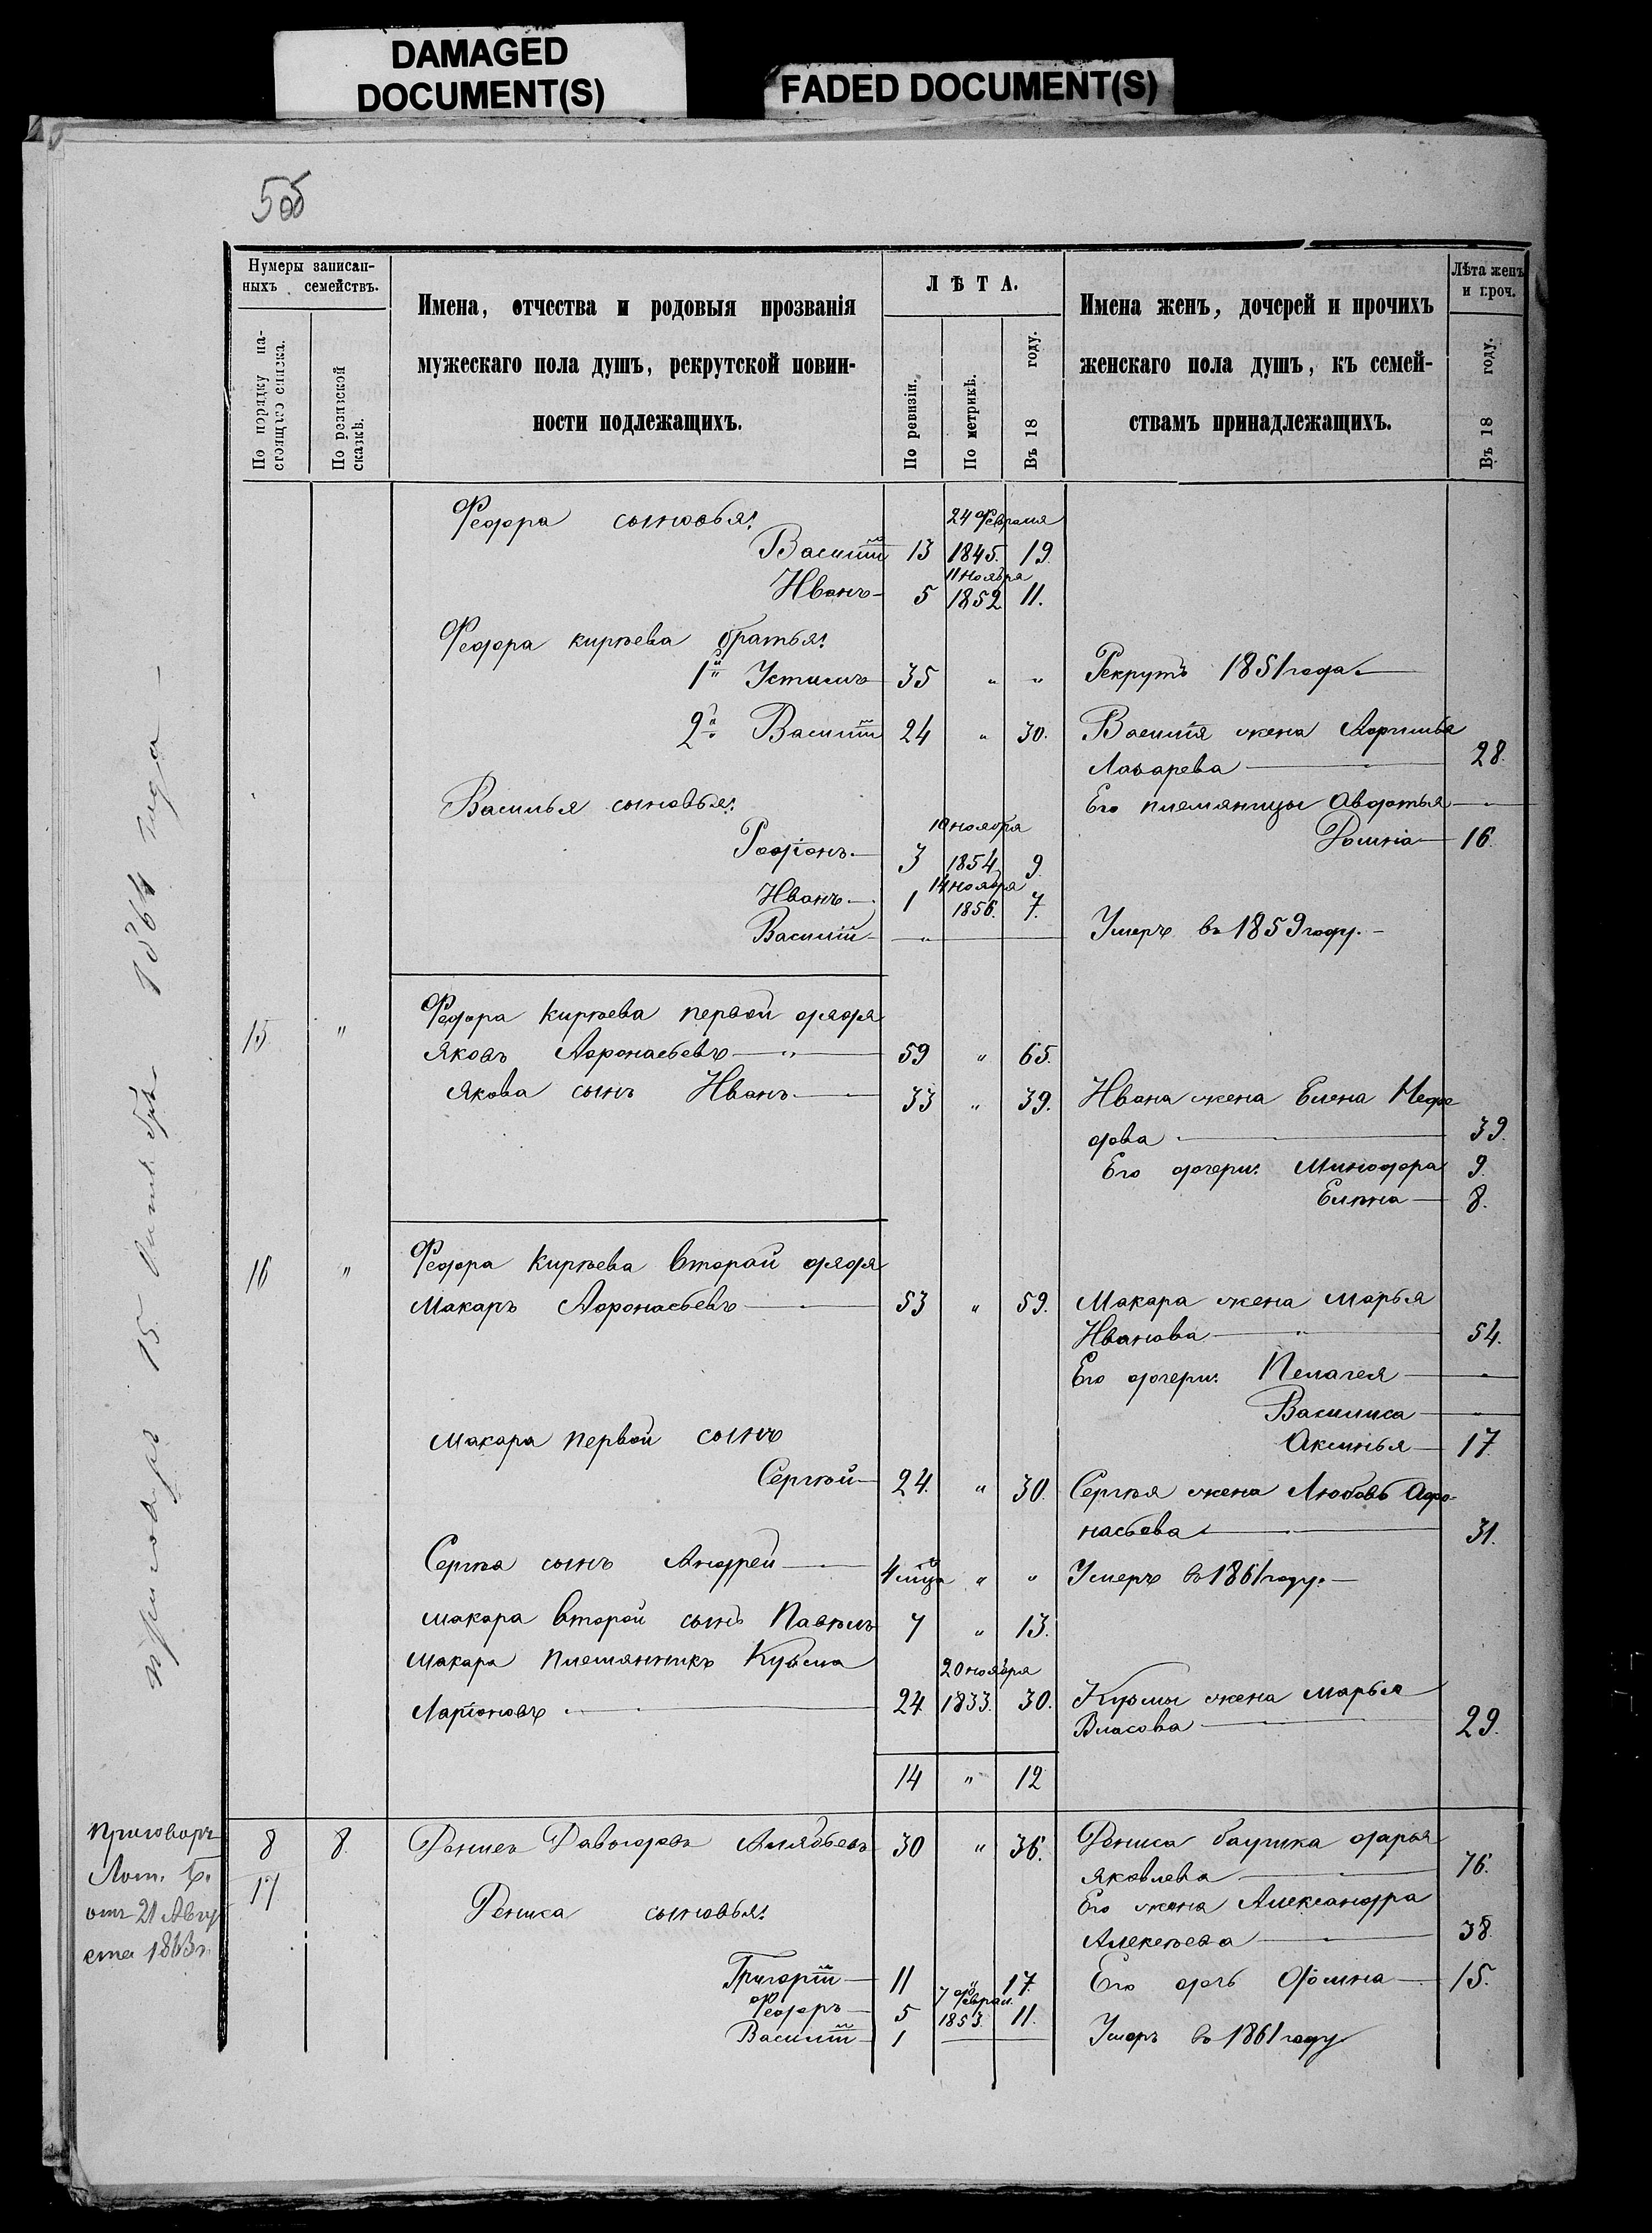 DAMAGED
DOCUMENT(S)
FADED DOCUMENT(S)
5об
Нумеры записан-
ныхъ семействъ.
По порядку на-
стоящаго списка.
По ревизской
сказкѣ.
Имена, отчества и родовыя прозванія
мужескаго пола душъ, рекрутской повин-
ности подлежащихъ.
ЛѢТА.
По ревизіи.
По метрикѣ.
Въ 18 году.
Имена женъ, дочерей и прочихъ
женскаго пола душъ, къ семей-
ствамъ принадлежащихъ.
Лѣта женъ
и проч.
Въ 18 году.
Федора сыновья:
24 Февраля
Василій 13 1845. 19.
11 ноября
Иванъ 5 1852 11.
Федора Кирѣева братья:
1й Устинъ 35 " " Рекрутъ 1851 года.
2й Василій 24 " 30. Василія жена
Лазарева 28.
Василья сыновья: Его племянницы Авдотья "
10 ноября
Родіонъ. 3 1854 9. Домна 16.
14 ноября
Иванъ 1 1856. 7.
Василій " Умеръ въ 1859 году.
15. " Федора Кирѣева первой дядя
Яковъ Афонасьевъ " 59 " 65.
Якова сынъ Иванъ 33 " 39. Ивана жена Елена Мефо
дова 39.
Его дочери: Минодора 9.
Елѣна 8.
16 " Федора Кирѣева второй дядя
Макаръ Афонасьевъ 53 " 59. Макара жена Марья
Иванова " 54.
Его дочери: Пелагея "
Василиса "
Макара первой сынъ Аксинья 17
Сергѣй 24. " 30. Сергѣя жена Любовь Афо-
насьева 31.
Сергѣя сынъ Андрей 4 мца " " Умеръ въ 1861 году.
Макара второй сынъ Павелъ 7 " 13.
Макара племянникъ Кузьма 20 ноября
Ларіоновъ 24 1833. 30. Кузьмы жена Марья
Власова 29.
14 " 12
8 8 Денисъ Давыдовъ Алябьевъ 30 " 36. Дениса бабушка Дарья
Яковлева 76.
17 Его жена Александра
Дениса сыновья: Алексѣева 38.
Григорій 11 17. Его дочь Фомина 15.
7 феврал.
Федоръ 5 1853. 11.
Василій 1 Умеръ въ 1861 году
Приговоръ 15 1864 года
Приговоръ
Лит. Б.
отъ 21 Авгу
ста 1863 г.